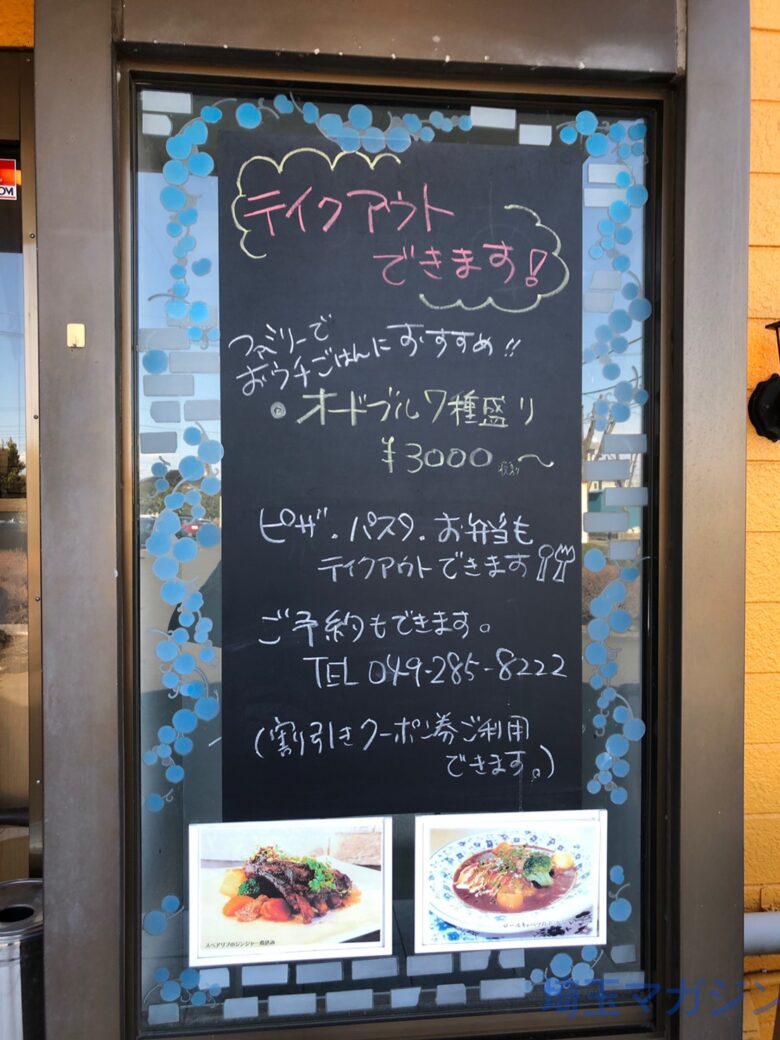 テイクアウト
できます!
ファミリーで
おウチごはんにおすすめ!!
・オードブル7種盛り
¥3000 税別〜
ピザ・パスタ・お弁当も
テイクアウトできます
ご予約もできます。
TEL 049-285-8222
(割引きクーポン券ご利用
できます。)
スペアリブのジンジャー煮込み
埼玉マガジン